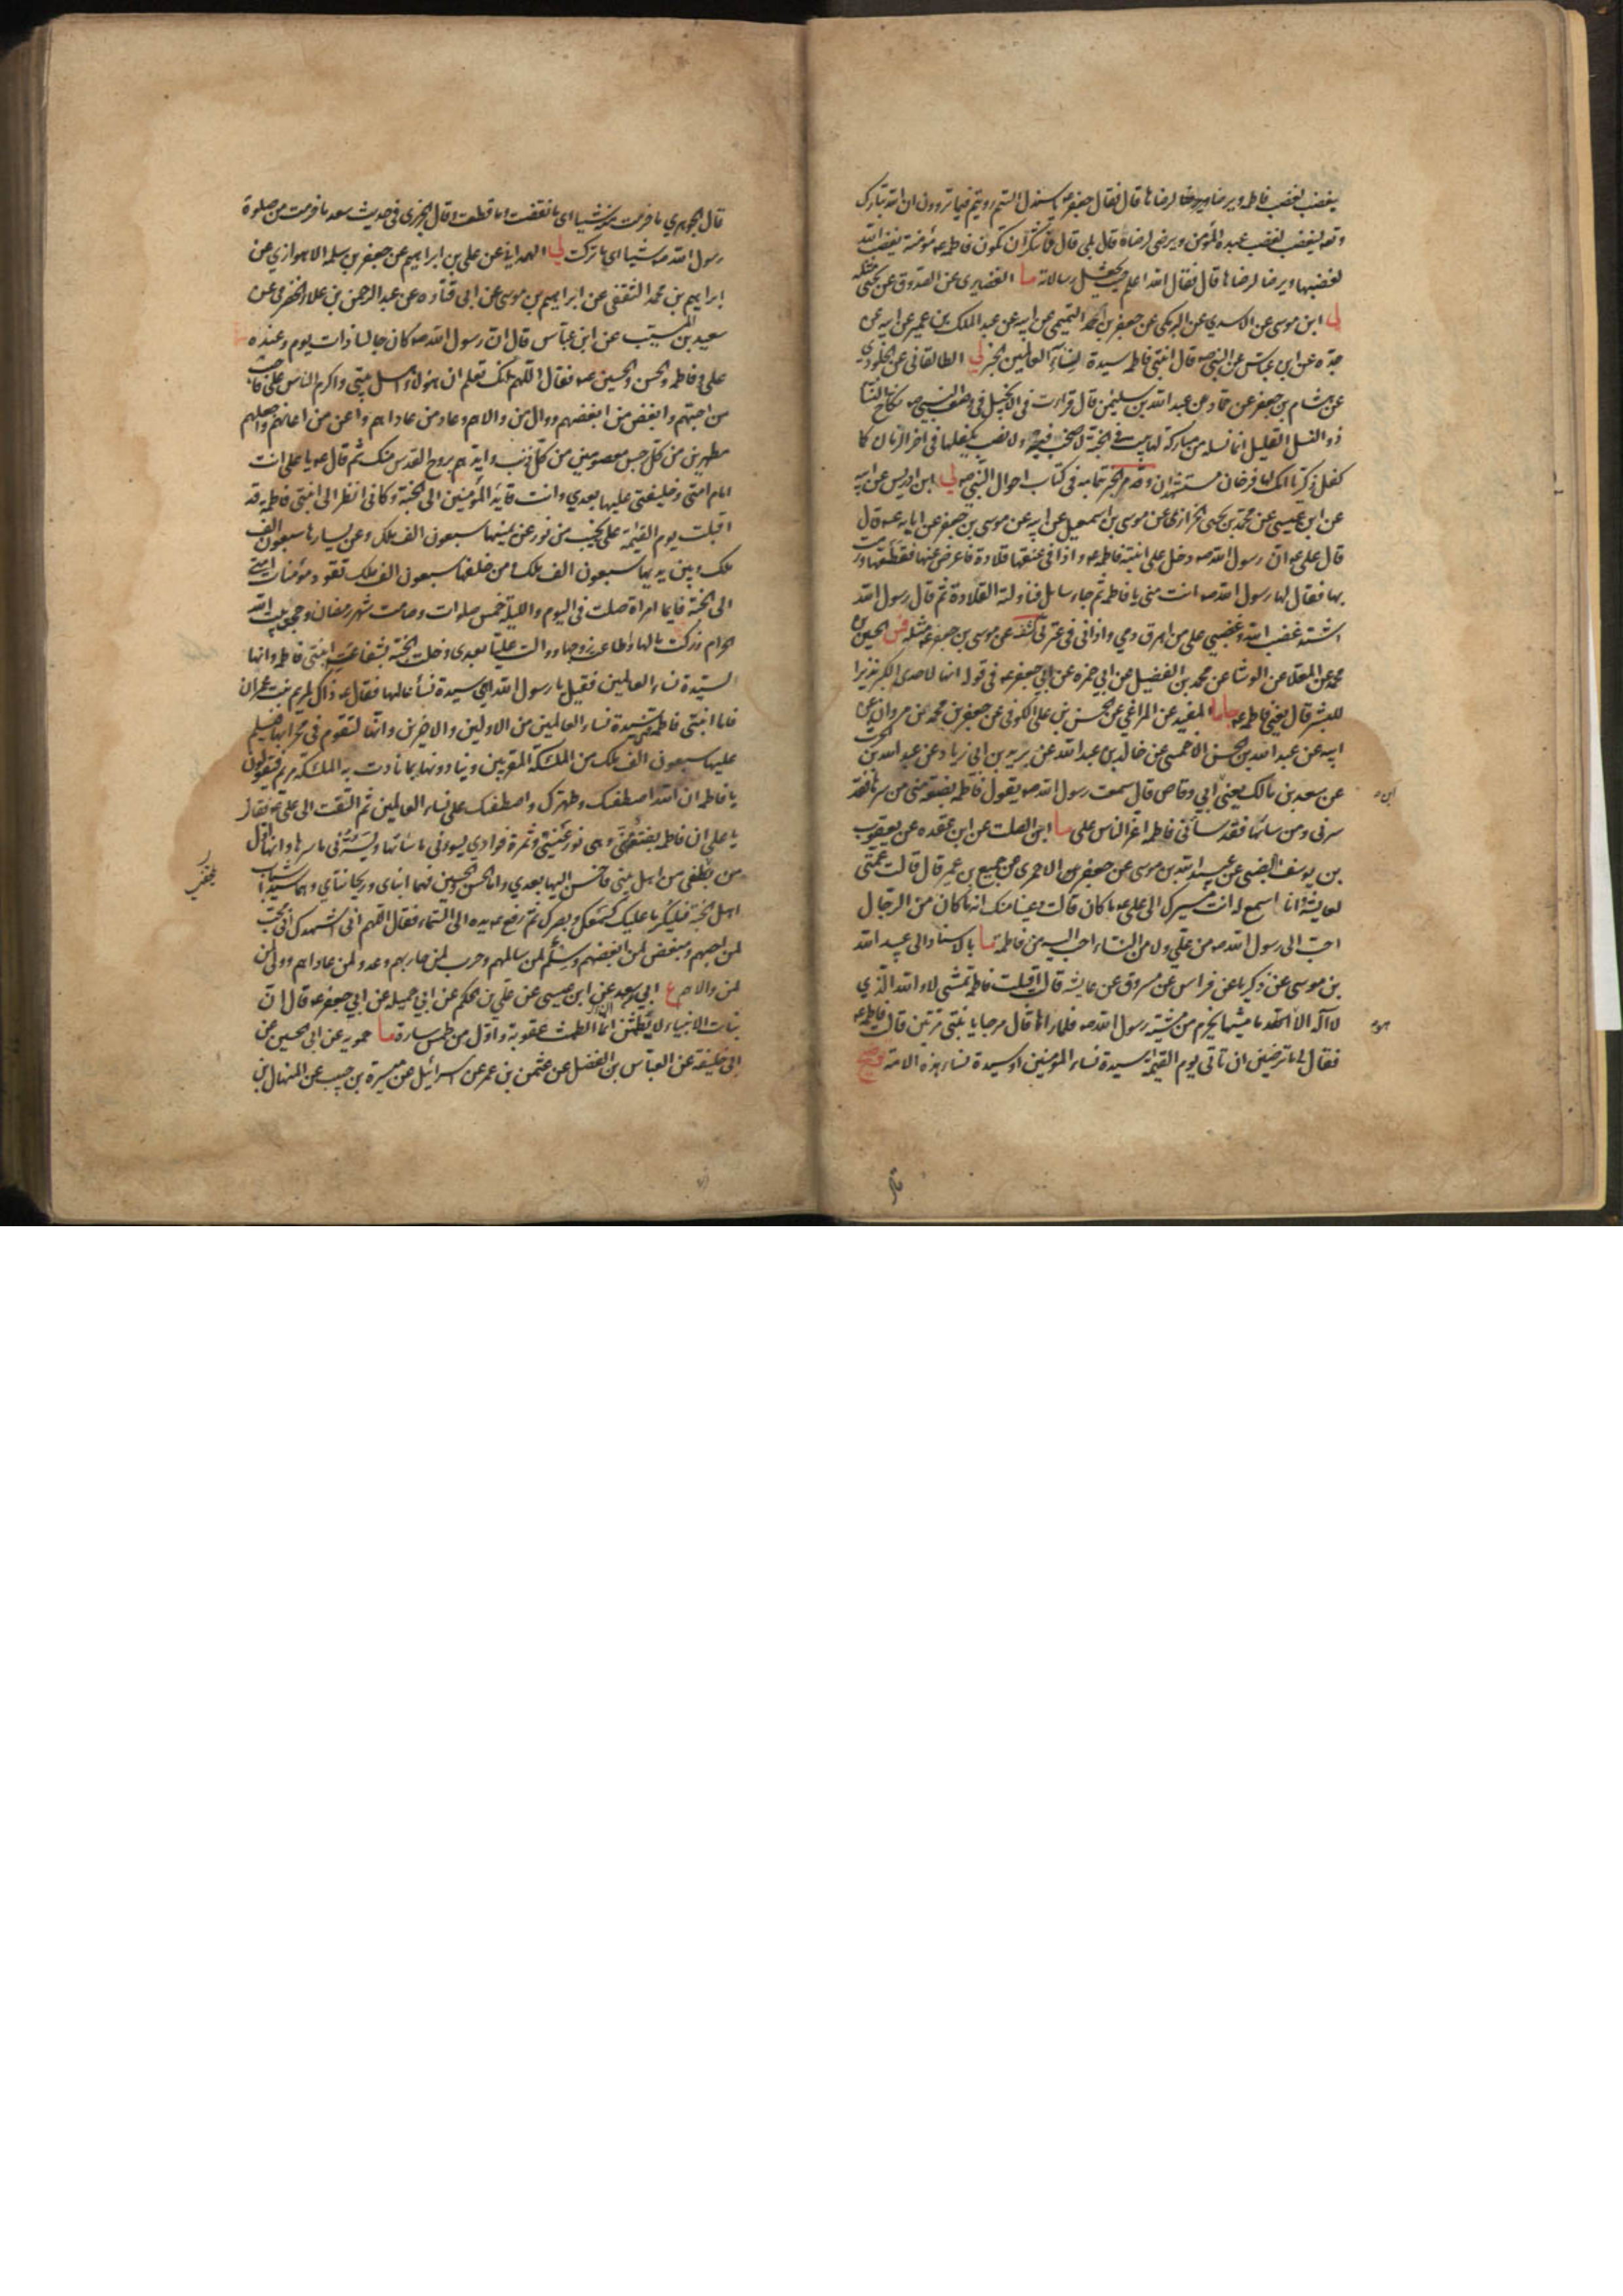 يغضب لغضب فاطمه ويرضا لرضاها قال فقال جعفر ع يا سندل الستم رويتم فيما تروون ان الله تبارك
وتعه ليغضب لغضب عبده المؤمن ويرضى لرضاه قال بلى قال فما تنكر ان تكون فاطمه ع مؤمنة يغضب الله
لغضبها ويرضا لرضاها قال فقال الله اعلم حيث يجعل رسالاته ما الغضايرى عن الصدوق عن يحيى مثله
لى ابن موسى عن الاسدي عن البرمكى عن جعفر بن احمد التميمى عن ابيه عن عبد الملك بن عمير عن ابيه عن
جده عن ابن عباس عن النبى ص قال ابنتى فاطمه سيدة نساء العالمين الخبر لى الطالقانى عن الجلودي
عن هشام بن جعفر عن حماد عن عبد الله بن سليمن قال قرات فى الانجيل فى وصف النبى ص نكاح النساء
ذو النسل القليل انما نسله من مباركة لها بيت فى الجنة لا صخب فيه ولا نصب يكفلها فى اخر الزمان كما
كفل زكريا امك لها فرخان مستشهدان وقد مر الخبر بتمامه فى كتاب احوال النبى ص لى ابن ادريس عن ابيه
عن ابن عيسى عن محمد بن يحيى الخزاز عن موسى بن اسمعيل عن ابيه عن موسى بن جعفر عن ابايه ع قال
قال على ع ان رسول الله ص دخل على ابنته فاطمه ع واذا فى عنقها قلادة فاعرض عنها فقطعتها ورمت
بها فقال لها رسول الله ص انت منى يا فاطمه ثم جاء سائل فناولته القلادة ثم قال رسول الله
اشتد غضب الله وغضبى على من اهرق دمي واذانى فى عترتى كشف عن موسى بن جعفر ع مثله فس الحسين بن
محمد عن المعلا عن الوشا عن محمد بن الفضيل عن ابي حمزه عن ابي جعفر ع فى قوله انها لاحدى الكبر نذيرا
للبشر قال يعنى فاطمه ع جا ما المفيد عن المراغي عن الحسن بن على الكوفى عن جعفر بن محمد بن مروان عن
ابيه عن عبد الله بن الحسن الاحمسى عن خالد بن عبد الله عن يزيد بن ابى زياد عن عبد الله بن الحرث
عن سعد بن مالك يعنى ابي وقاص قال سمعت رسول الله ص يقول فاطمه بضعة منى من سرها فقد
سرنى ومن ساءها فقد ساءنى فاطمه اعز الناس على ما ابن الصلت عن ابن عقده عن يعقوب
بن يوسف الضبى عن عبيد الله بن موسى عن جعفر الاحمرى عن جميع بن عمير قال قالت عمتى
لعايشة وانا اسمع له انت مسيرك الى على ع ما كان قالت دعينا منك انه ما كان من الرجال
احب الى رسول الله ص من على ولا من النساء احب اليه من فاطمه ما بالاسناد الى عبيد الله
بن موسى عن زكريا عن فراس عن مسروق عن عايشه قالت اقبلت فاطمه تمشى لا والله الذي
لا اله الا هو ما مشيها يخرم من مشية رسول الله ص فلما راها قال مرحبا يا بنتى مرتين قالت فاطمه ع
فقال لى اما ترضين ان تاتى يوم القيمة سيدة نساء المؤمنين او سيدة نساء هذه الامة
قال الجوهري ما خرمت منه شيئا اى ما نقصت وما قطعت وقال الجزرى فى حديث سعد ما خرمت من صلوة
رسول الله ص شيئا اي ما تركت لى الهمدانى عن على بن ابراهيم عن جعفر بن سلمه الاهوازي عن
ابراهيم بن محمد الثقفى عن ابراهيم بن موسى عن ابى قتاده عن عبد الرحمن بن علاء الحضرمى عن
سعيد بن المسيب عن ابن عباس قال ان رسول الله ص كان جالسا ذات يوم وعنده
على وفاطمه والحسن والحسين ع فقال اللهم انك تعلم ان هؤلاء اهل بيتى واكرم الناس على فاحب
من احبهم وابغض من ابغضهم ووال من والاهم وعاد من عاداهم واعن من اعانهم واجعلهم
مطهرين من كل رجس معصومين من كل ذنب وايدهم بروح القدس منك ثم قال ع يا على انت
امام امتى وخليفتى عليها بعدي وانت قايد المؤمنين الى الجنة وكانى انظر الى ابنتى فاطمه قد
اقبلت يوم القيمة على نجيب من نور عن يمينها سبعون الف ملك وعن يسارها سبعون الف
ملك وبين يديها سبعون الف ملك ومن خلفها سبعون الف ملك تقود مؤمنات امتى
الى الجنة فايما امراة صلت فى اليوم والليلة خمس صلوات وصامت شهر رمضان وحجت بيت الله
الحرام وزكت مالها واطاعت زوجها ووالت عليا بعدى دخلت الجنة بشفاعة ابنتى فاطمه وانها
لسيدة نساء العالمين فقيل يا رسول الله اهى سيدة نساء عالمها فقال ع ذاك لمريم بنت عمران
فاما ابنتى فاطمه فهى سيدة نساء العالمين من الاولين والاخرين وانها لتقوم فى محرابها فيسلم
عليها سبعون الف ملك من الملئكة المقربين وينادونها بما نادت به الملئكة مريم فيقولون
يا فاطمه ان الله اصطفيك وطهرك واصطفيك على نساء العالمين ثم التفت الى على ع فقال
يا على ان فاطمه بضعة منى وهى نور عينى وثمرة فوادي يسوءنى ما ساءها ويسرنى ما سرها وانها اول
من يلحقنى من اهل بيتى فاحسن اليها بعدي واما الحسن والحسين فهما ابناى وريحانتاي وهما سيدا شباب
اهل الجنة فليكرما عليك كسمعك وبصرك ثم رفع ع يده الى السماء فقال اللهم انى اشهدك انى محب
لمن احبهم ومبغض لمن ابغضهم وسلم لمن سالمهم وحرب لمن حاربهم وعدو لمن عاداهم وولى
لمن والاهم ع ابي عن سعد عن ابن عيسى عن على بن الحكم عن ابي جميله عن ابي جعفر ع قال ان
بنات الانبياء لا يطمثن انما الطمث عقوبة واول من طمثت سارة ما حمويه عن ابى الحسين عن
ابى خليفه عن العباس بن الفضل عن عثمن بن عمر عن اسرائيل عن ميسرة بن حبيب عن المنهال بن